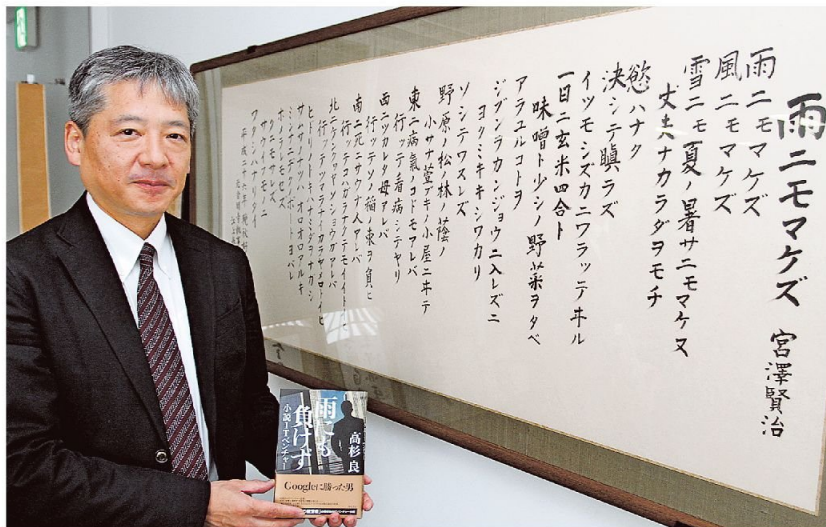 雨ニモマケズ 宮澤賢治
雨ニモマケズ
風ニモマケズ
雪ニモ夏ノ暑サニモマケヌ
丈夫ナカラダヲモチ
慾ハナク
決シテ瞋ラズ
イツモシズカニワラッテヰル
一日ニ玄米四合ト
味噌ト少シノ野菜ヲタベ
アラユルコトヲ
ジブンヲカンジョウニ入レズニ
ヨクミキキシワカリ
ソシテワスレズ
野原ノ松ノ林ノ蔭ノ
小サナ萱ブキノ小屋ニヰテ
東ニ病気ノコドモアレバ
行ッテ看病シテヤリ
西ニツカレタ母アレバ
行ッテソノ稲ノ束ヲ負ヒ
南ニ死ニサウナ人アレバ
行ッテコハガラナクテモイイトイヒ
北ニケンクヮヤソショウガアレバ
ツマラナイカラヤメロトイヒ
ヒドリノトキハナミダヲナガシ
サムサノナツハオロオロアルキ
ミンナニデクノボートヨバレ
ホメラレモセズ
クニモサレズ
サウイフモノニ
ワタシハナリタイ
平成二十六年
雨にも
負けず
小説ITベンチャー
高杉良
Googleに勝った男